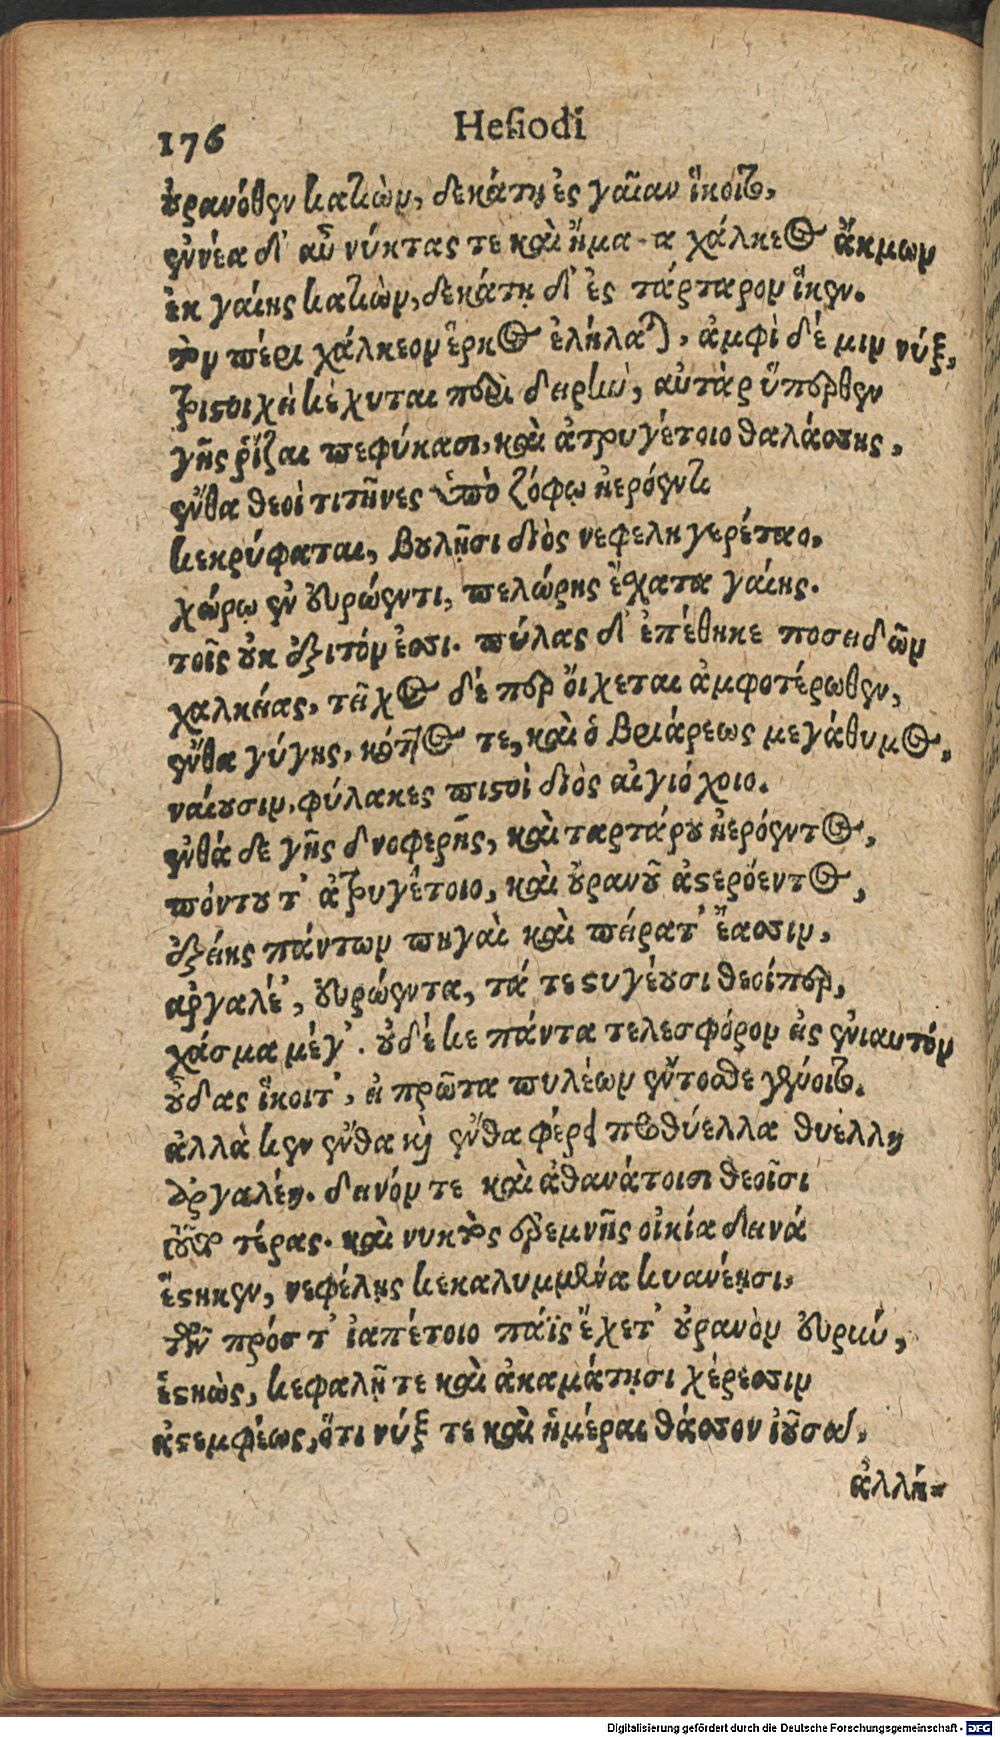 176 Hesiodi
οὐρανόθεν κατιὼν, δεκάτῃ ἐς γαῖαν ἵκοιτο,
ἐννέα δ' αὖ νύκτας τε καὶ ἤματα χάλκεος ἄκμων
ἐκ γαίης κατιὼν, δεκάτῃ δ' ἐς τάρταρον ἵκεν.
τὸν πέρι χάλκεον ἕρκος ἐλήλαται, ἀμφὶ δέ μιν νύξ,
τριστοιχεὶ κέχυται περὶ δειρὴν, αὐτὰρ ὕπερθεν
γῆς ῥίζαι πεφύκασι, καὶ ἀτρυγέτοιο θαλάσσης,
ἔνθα θεοὶ τιτῆνες ὑπὸ ζόφῳ ἠερόεντι
κεκρύφαται, βουλῇσι διὸς νεφεληγερέταο,
χώρῳ ἐν εὐρώεντι, πελώρης ἔσχατα γαίης.
τοῖς οὐκ ἐξιτόν ἐστι. πύλας δ' ἐπέθηκε ποσειδῶν
χαλκείας, τεῖχος δέ περ οἴχεται ἀμφοτέρωθεν,
ἔνθα γύγης, κόττος τε, καὶ ὁ βριάρεως μεγάθυμος,
ναίουσιν, φύλακες πιστοὶ διὸς αἰγιόχοιο.
ἐνθά δε γῆς δνοφερῆς, καὶ ταρτάρου ἠερόεντος,
πόντου τ' ἀτρυγέτοιο, καὶ οὐρανοῦ ἀστερόεντος,
ἑξείης πάντων πηγαὶ καὶ πείρατ' ἔασσιν,
αργαλέ', εὐρώεντα, τά τε στυγέουσι θεοί περ,
χάσμα μέγ'. οὐδέ κε πάντα τελεσφόρον εἰς ἐνιαυτόν
οὖδας ἵκοιτ', εἰ πρῶτα πυλέων ἔντοσθε γένοιτο.
ἀλλὰ κεν ἔνθα καὶ ἔνθα φέροι προθύελλα θυέλλῃ
ἀργαλέῃ. δεινόν τε καὶ ἀθανάτοισι θεοῖσι
τοῦτο τέρας. καὶ νυκτὸς ἐρεμνῆς οἰκία δεινά
ἕστηκεν, νεφέλῃς κεκαλυμμένα κυανέῃσι,
τῶν πρόσ τ' ἰαπέτοιο πάϊς ἔχετ' οὐρανὸν εὐρύν,
ἑστηὼς, κεφαλῇ τε καὶ ἀκαμάτῃσι χέρεσσιν
ἀστεμφέως, ὅτι νύξ τε καὶ ἡμέραι θάσσον ἰοῦσαι,
ἀλλή=
Digitalisierung gefördert durch die Deutsche Forschungsgemeinschaft - DFG